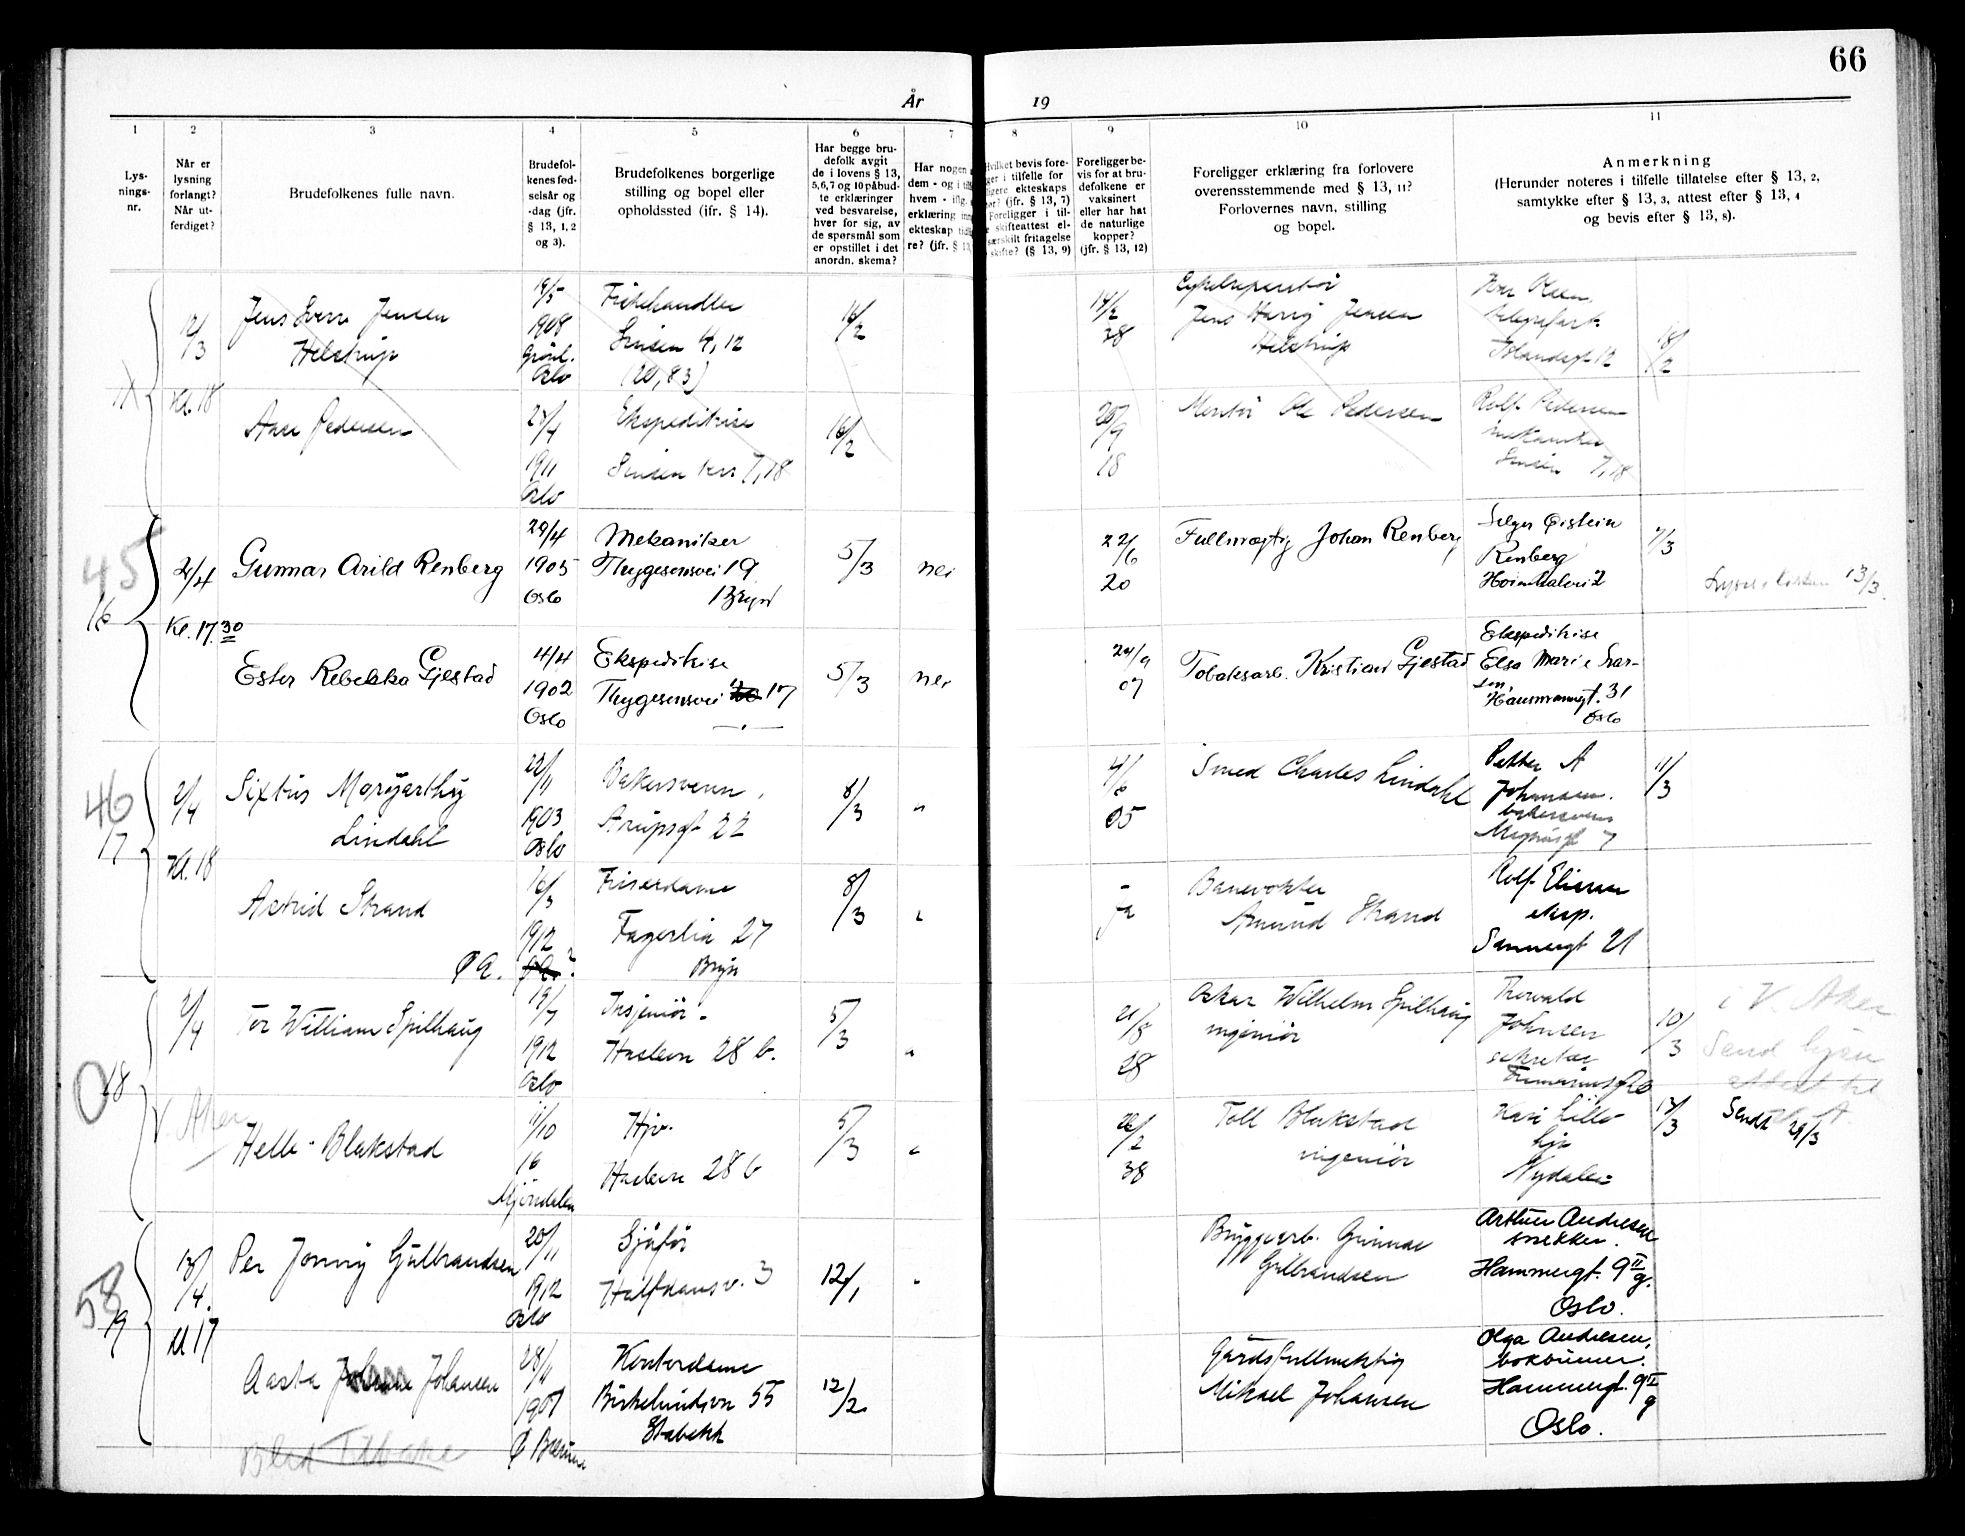 66
År 19
1 2 3 4 5 6 7 8 9 10 11
Lys-
nings-
nr.
Når er
lysning
forlangt?
Når ut-
ferdiget?
Brudefolkenes fulle navn.
Brudefol-
kenes fød-
selsår og
-dag (jfr.
§ 13, 1, 2
og 3).
Brudefolkenes borgerlige
stilling og bopel eller
opholdssted (ifr. § 14).
Har begge bru-
defolk avgit
de i lovens § 13,
5,6,7 og 10 påbud-
te erklæringer
ved besvarelse,
hver for sig, av
de spørsmål som
er opstillet i det
anordn. skema?
Har nogen
dem - og i
hvem - iflg.
erklæring
ekteskap
re? (jfr. §
Hvilket bevis fore-
ger i tilfelle for
ekteskaps
(jfr. § 13, 7)
Foreligger i til-
skifteattest el-
særskilt fritagelse
skifte? (§ 13, 9)
Foreligger be-
vis for at bru-
defolkene er
vaksinert
eller har hat
de naturlige
kopper?
(jfr. § 13, 12)
Foreligger erklæring fra forlovere
overensstemmende med § 13, 11?
Forlovernes navn, stilling
og bopel.
Anmerkning
(Herunder noteres i tilfelle tillatelse efter § 13, 2,
samtykke efter § 13, 3, attest efter § 13, 4
og bevis efter § 13, 8).
12/3
Kl. 18
Jens Sverre Jensen
Helstrup
19/5
1908
Grønl.
Oslo
Fiskehandler
Sinsen 4, 12
(20, 83)
16/2
14/2
38
Jens Harry Jensen
Helstrup
Iver Olsen,
18/2
Aase Pedersen
27/4
1911
Oslo
Ekspeditrise
Sinsen terr 7, 18
16/2
25/9
18
Montør Ole Pedersen
Rolf Pedersen
mekaniker
Sinsen 7, 18
45
16
2/4
Kl. 17.30
Gunnar Arild Renberg
29/4
1905
Oslo
Mekaniker
Thygesensvei 19
Bryn
5/3
nei
22/6
20
Fullmægtig Johan Renberg
Selger Øistein
Renberg
7/3
13/3.
Ester Rebekka Gjestad
4/4
1902
Oslo
Ekspeditrise
Thygesensvei 17
5/3
nei
24/9
07
Tobaksarb. Kristian Gjestad
Ekspeditrise
Elsa Marie Lar-
sen,
Hausmannsgt. 31
Oslo
46
17
2/4
Kl. 18
Sixtus Margarthy
Lindahl
22/11
1903
Oslo
Bakersvenn,
Arupsgt 22
8/3
"
4/6
05
Smed Charles Lindahl
Petter A
Johansen.
bakersvenn
11/3
Astrid Strand
Ø A.
16/3
1912
Friserdame
Fagerlia 27
Bryn
8/3
"
- ja
Banevokter
Amund Strand
Rolf Eliassen
eksp.
Sannergt 21
0
18
2/4
V. Aker
Tor William Spilhaug
19/7
1912
Oslo
Insjeniør -
Haslevn 28 b.
5/3
"
21/8
28
Oskar Wilhelm Spilhaug
ingeniør
Thorvald
Johnsen
sekretær
10/3
i V. Aker
Send
attest til
Helle Blakstad
11/10
16
Mjøndalen
Hjv.
Haslevn 28 b
5/3
"
26/2
38
Toll Blakstad
ingeniør
Kari Lillo
Nydalen
13/3
Sendt 29/3
58
19
13/4.
kl 17
Per Jonny Gulbrandsen
20/11
1912
Oslo
Sjåfør
Halfdansv. 3
12/1
"
Bryggearb. Gunnar
Gulbrandsen
Arthur Andresen
snekker.
Hammergt. 9 II g.
Oslo.
Aasta Johansen
28/11
1907
Ø Bærum
Kontordame
Birkelundsvn 55
Stabekk
12/2
Gårdsfullmektig
Mikael Johansen
Olga Andresen,
Hammergt. 9 II g
Oslo.